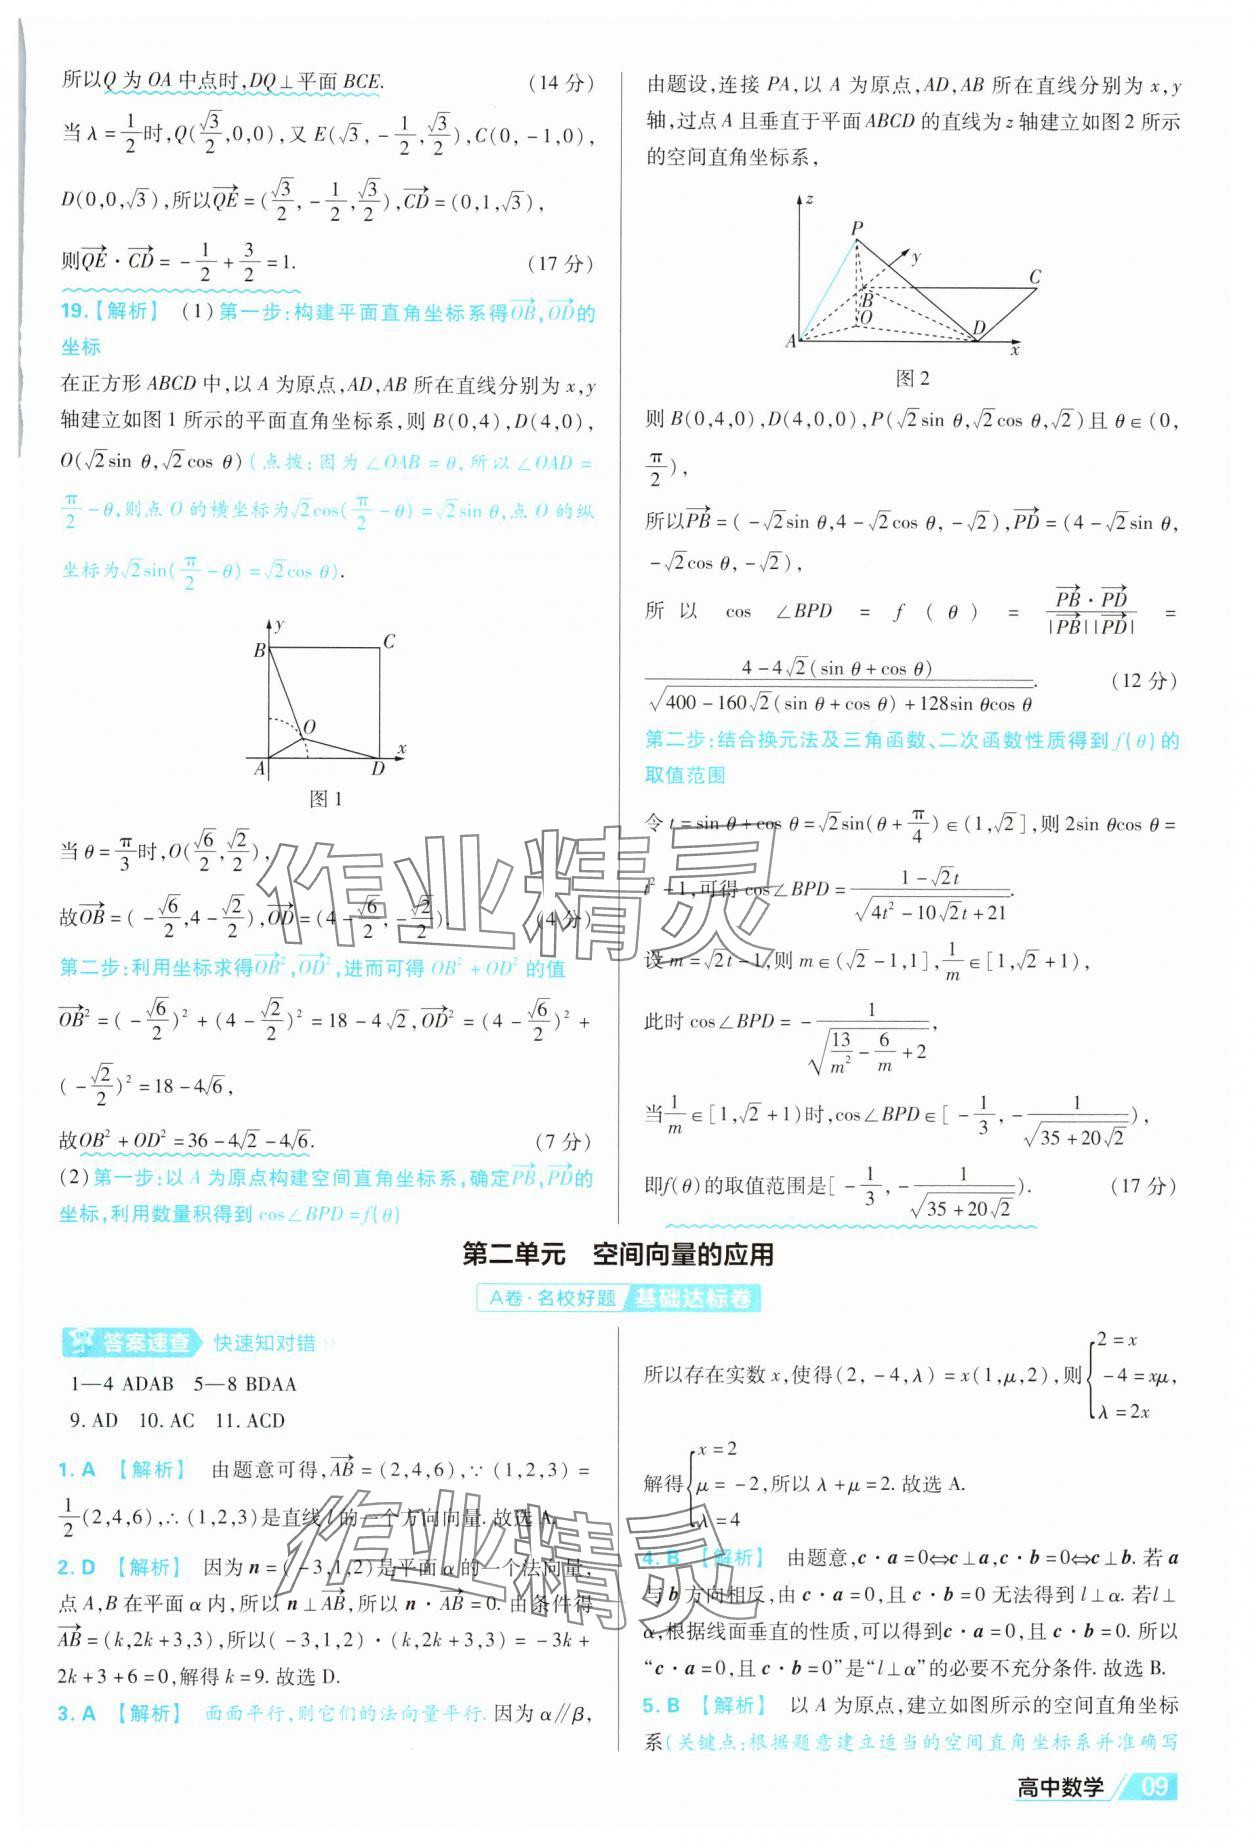 所以Q 为 OA 中点时,DQ⊥平面 BCE. (14 分)
当 λ=1/2时,Q(√3/2,0,0),又 E(√3,-1/2,√3/2),C(0,-1,0),
D(0,0,√3),所以QE→=(√3/2,-1/2,√3/2),CD→=(0,1,√3),
则QE→·CD→=-1/2+3/2=1. (17 分)
19.【解析】 (1)第一步:构建平面直角坐标系得OB→,OD→的
坐标
在正方形 ABCD 中,以 A 为原点,AD,AB 所在直线分别为 x,y
轴建立如图 1 所示的平面直角坐标系,则 B(0,4),D(4,0),
O(√2sin θ,√2cos θ)(点拨:因为∠OAB=θ,所以∠OAD=
π/2-θ,则点 O 的横坐标为√2cos(π/2-θ)=√2sin θ,点 O 的纵
坐标为√2sin(π/2-θ)=√2cos θ).
y
B
C
O
x
A
D
图 1
当 θ=π/3时,O(√6/2,√2/2),
故OB→=(-√6/2,4-√2/2),OD→=(4-√6/2,-√2/2). (4 分)
第二步:利用坐标求得OB→²,OD→²,进而可得 OB²+OD² 的值
OB→²=(-√6/2)²+(4-√2/2)²=18-4√2,OD→²=(4-√6/2)²+
(-√2/2)²=18-4√6,
故OB²+OD²=36-4√2-4√6. (7 分)
(2)第一步:以 A 为原点构建空间直角坐标系,确定PB→,PD→的
坐标,利用数量积得到 cos∠BPD=f(θ)
由题设,连接 PA,以 A 为原点,AD,AB 所在直线分别为 x,y
轴,过点 A 且垂直于平面 ABCD 的直线为 z 轴建立如图 2 所示
的空间直角坐标系,
z
P
y
C
B
O
A
D
x
图 2
则 B(0,4,0),D(4,0,0),P(√2sin θ,√2cos θ,√2)且 θ∈(0,
π/2),
所以PB→=(-√2sin θ,4-√2cos θ,-√2),PD→=(4-√2sin θ,
-√2cos θ,-√2),
所以 cos ∠BPD = f(θ) = PB→·PD→/|PB→||PD→| =
4-4√2(sin θ+cos θ)/√(400-160√2(sin θ+cos θ)+128sin θcos θ). (12 分)
第二步:结合换元法及三角函数、二次函数性质得到 f(θ)的
取值范围
令 t=sin θ+cos θ=√2sin(θ+π/4)∈(1,√2],则 2sin θcos θ=
t²-1,可得 cos∠BPD=(1-√2t)/√(4t²-10√2t+21).
设 m=√2t-1,则 m∈(√2-1,1],1/m∈[1,√2+1),
此时 cos∠BPD=-1/√(13/m²-6/m+2),
当1/m∈[1,√2+1)时,cos∠BPD∈[-1/3,-1/√(35+20√2)),
即f(θ)的取值范围是[-1/3,-1/√(35+20√2)). (17 分)
第二单元 空间向量的应用
A卷·名校好题 基础达标卷
答案速查 快速知对错
1—4 ADAB 5—8 BDAA
9. AD 10. AC 11. ACD
1. A 【解析】 由题意可得,AB→=(2,4,6),∵(1,2,3)=
1/2(2,4,6),∴(1,2,3)是直线 l 的一个方向向量.故选 A.
2. D 【解析】 因为 n=(-3,1,2)是平面 α 的一个法向量,
点 A,B 在平面 α 内,所以 n⊥AB→,所以 n·AB→=0.由条件得
AB→=(k,2k+3,3),所以(-3,1,2)·(k,2k+3,3)=-3k+
2k+3+6=0,解得 k=9.故选 D.
3. A 【解析】 面面平行,则它们的法向量平行.因为 α∥β,
所以存在实数 x,使得(2,-4,λ)=x(1,μ,2),则{2=x
-4=xμ,
λ=2x
解得{x=2
μ=-2,所以 λ+μ=2.故选 A.
λ=4
4. B 【解析】 由题意,c·a=0⇔c⊥a,c·b=0⇔c⊥b.若 a
与 b 方向相反,由 c·a=0,且 c·b=0 无法得到 l⊥α.若l⊥
α,根据线面垂直的性质,可以得到c·a=0,且 c·b=0.所以
“c·a=0,且 c·b=0”是“l⊥α”的必要不充分条件.故选 B.
5. B 【解析】 以 A 为原点,建立如图所示的空间直角坐标
系(关键点:根据题意建立适当的空间直角坐标系并准确写
高中数学 09
作业精灵
作业精灵